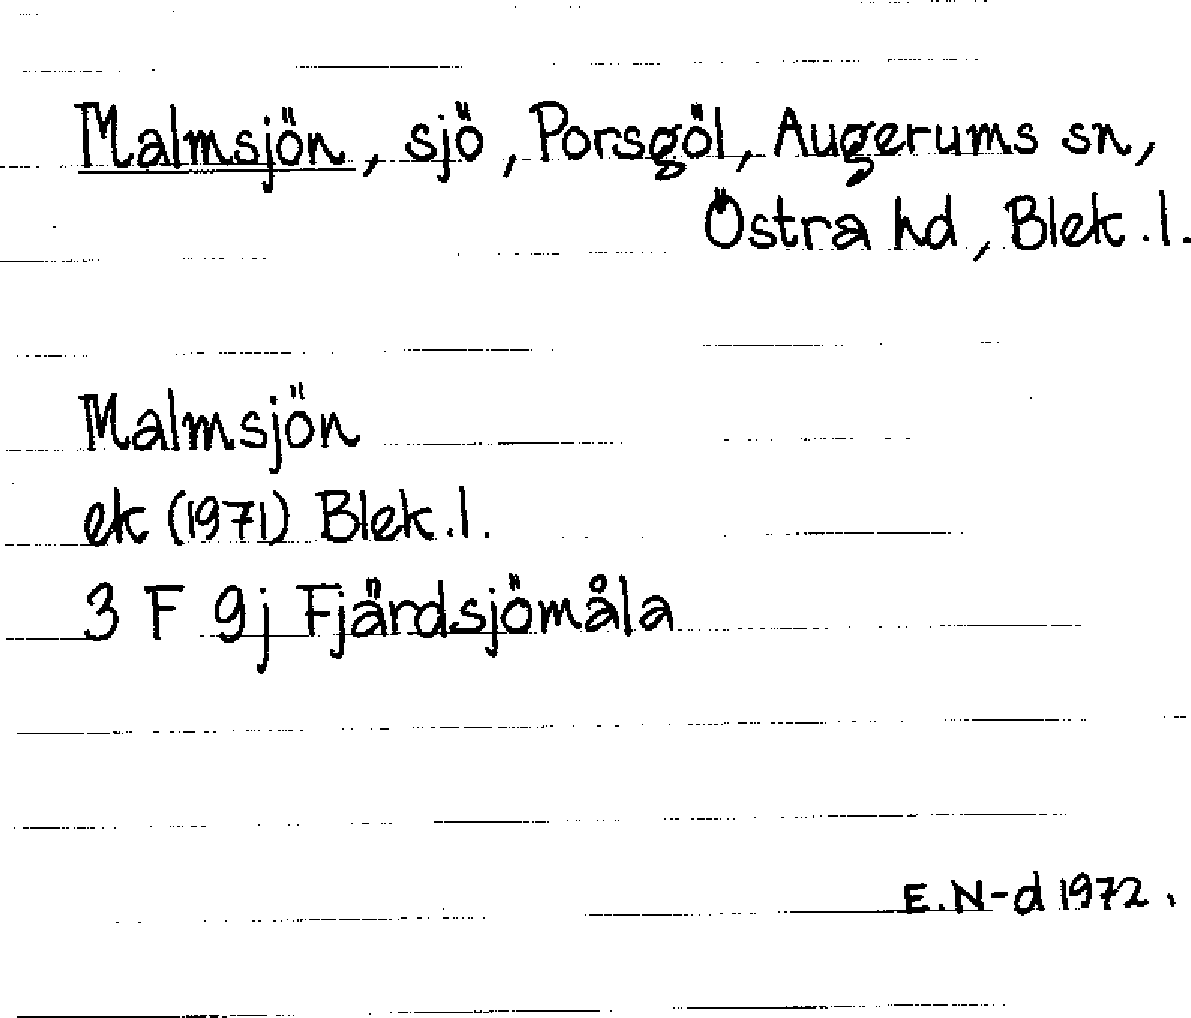 Malmsjön, sjö, Porsgöl, Augerums sn,
Östra hd, Blek.l.
Malmsjön
ek (1971) Blek.l.
3 F 9j Fjärdsjömåla
E.N-d 1972.